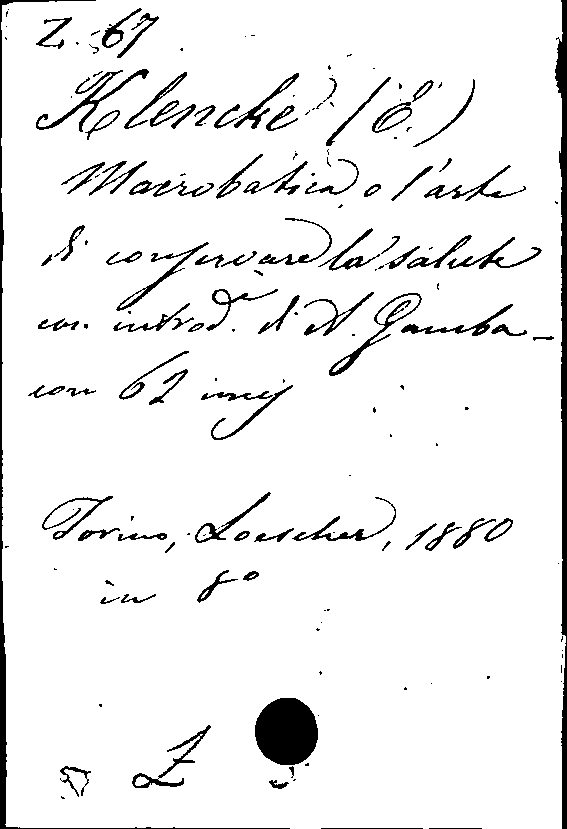 Z. 67
Klencke (E.)
Macrobatica o l'arte
di conservare la salute
con introd.e di A. Gamba -
con 62 incis
Torino, Loescher, 1880
in 8º
Z